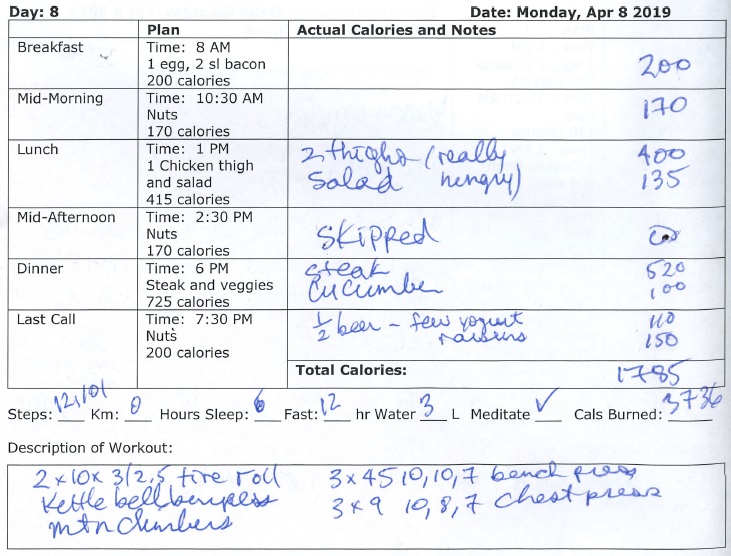 Day: 8 Date: Monday, Apr 8 2019
Plan Actual Calories and Notes
Breakfast Time: 8 AM
1 egg, 2 sl bacon
200 calories 200
Mid-Morning Time: 10:30 AM
Nuts
170 calories 170
Lunch Time: 1 PM 2 thighs (really 400
1 Chicken thigh
and salad salad hungry) 135
415 calories
Mid-Afternoon Time: 2:30 PM
Nuts skipped
170 calories
Dinner Time: 6 PM steak 520
Steak and veggies cucumber 100
725 calories
Last Call Time: 7:30 PM 1/2 beer - few yogurt 110
Nuts raisins 150
200 calories
Total Calories: 1785
Steps: 12,101 Km: 0 Hours Sleep: 6 Fast: 12 hr Water 3 L Meditate ✓ Cals Burned: 3736
Description of Workout:
2 x 10 x 3/2.5 tire roll 3 x 45 10, 10, 7 bench press
Kettle bell 3 x 9 10, 8, 7 chest press
mtn climbers